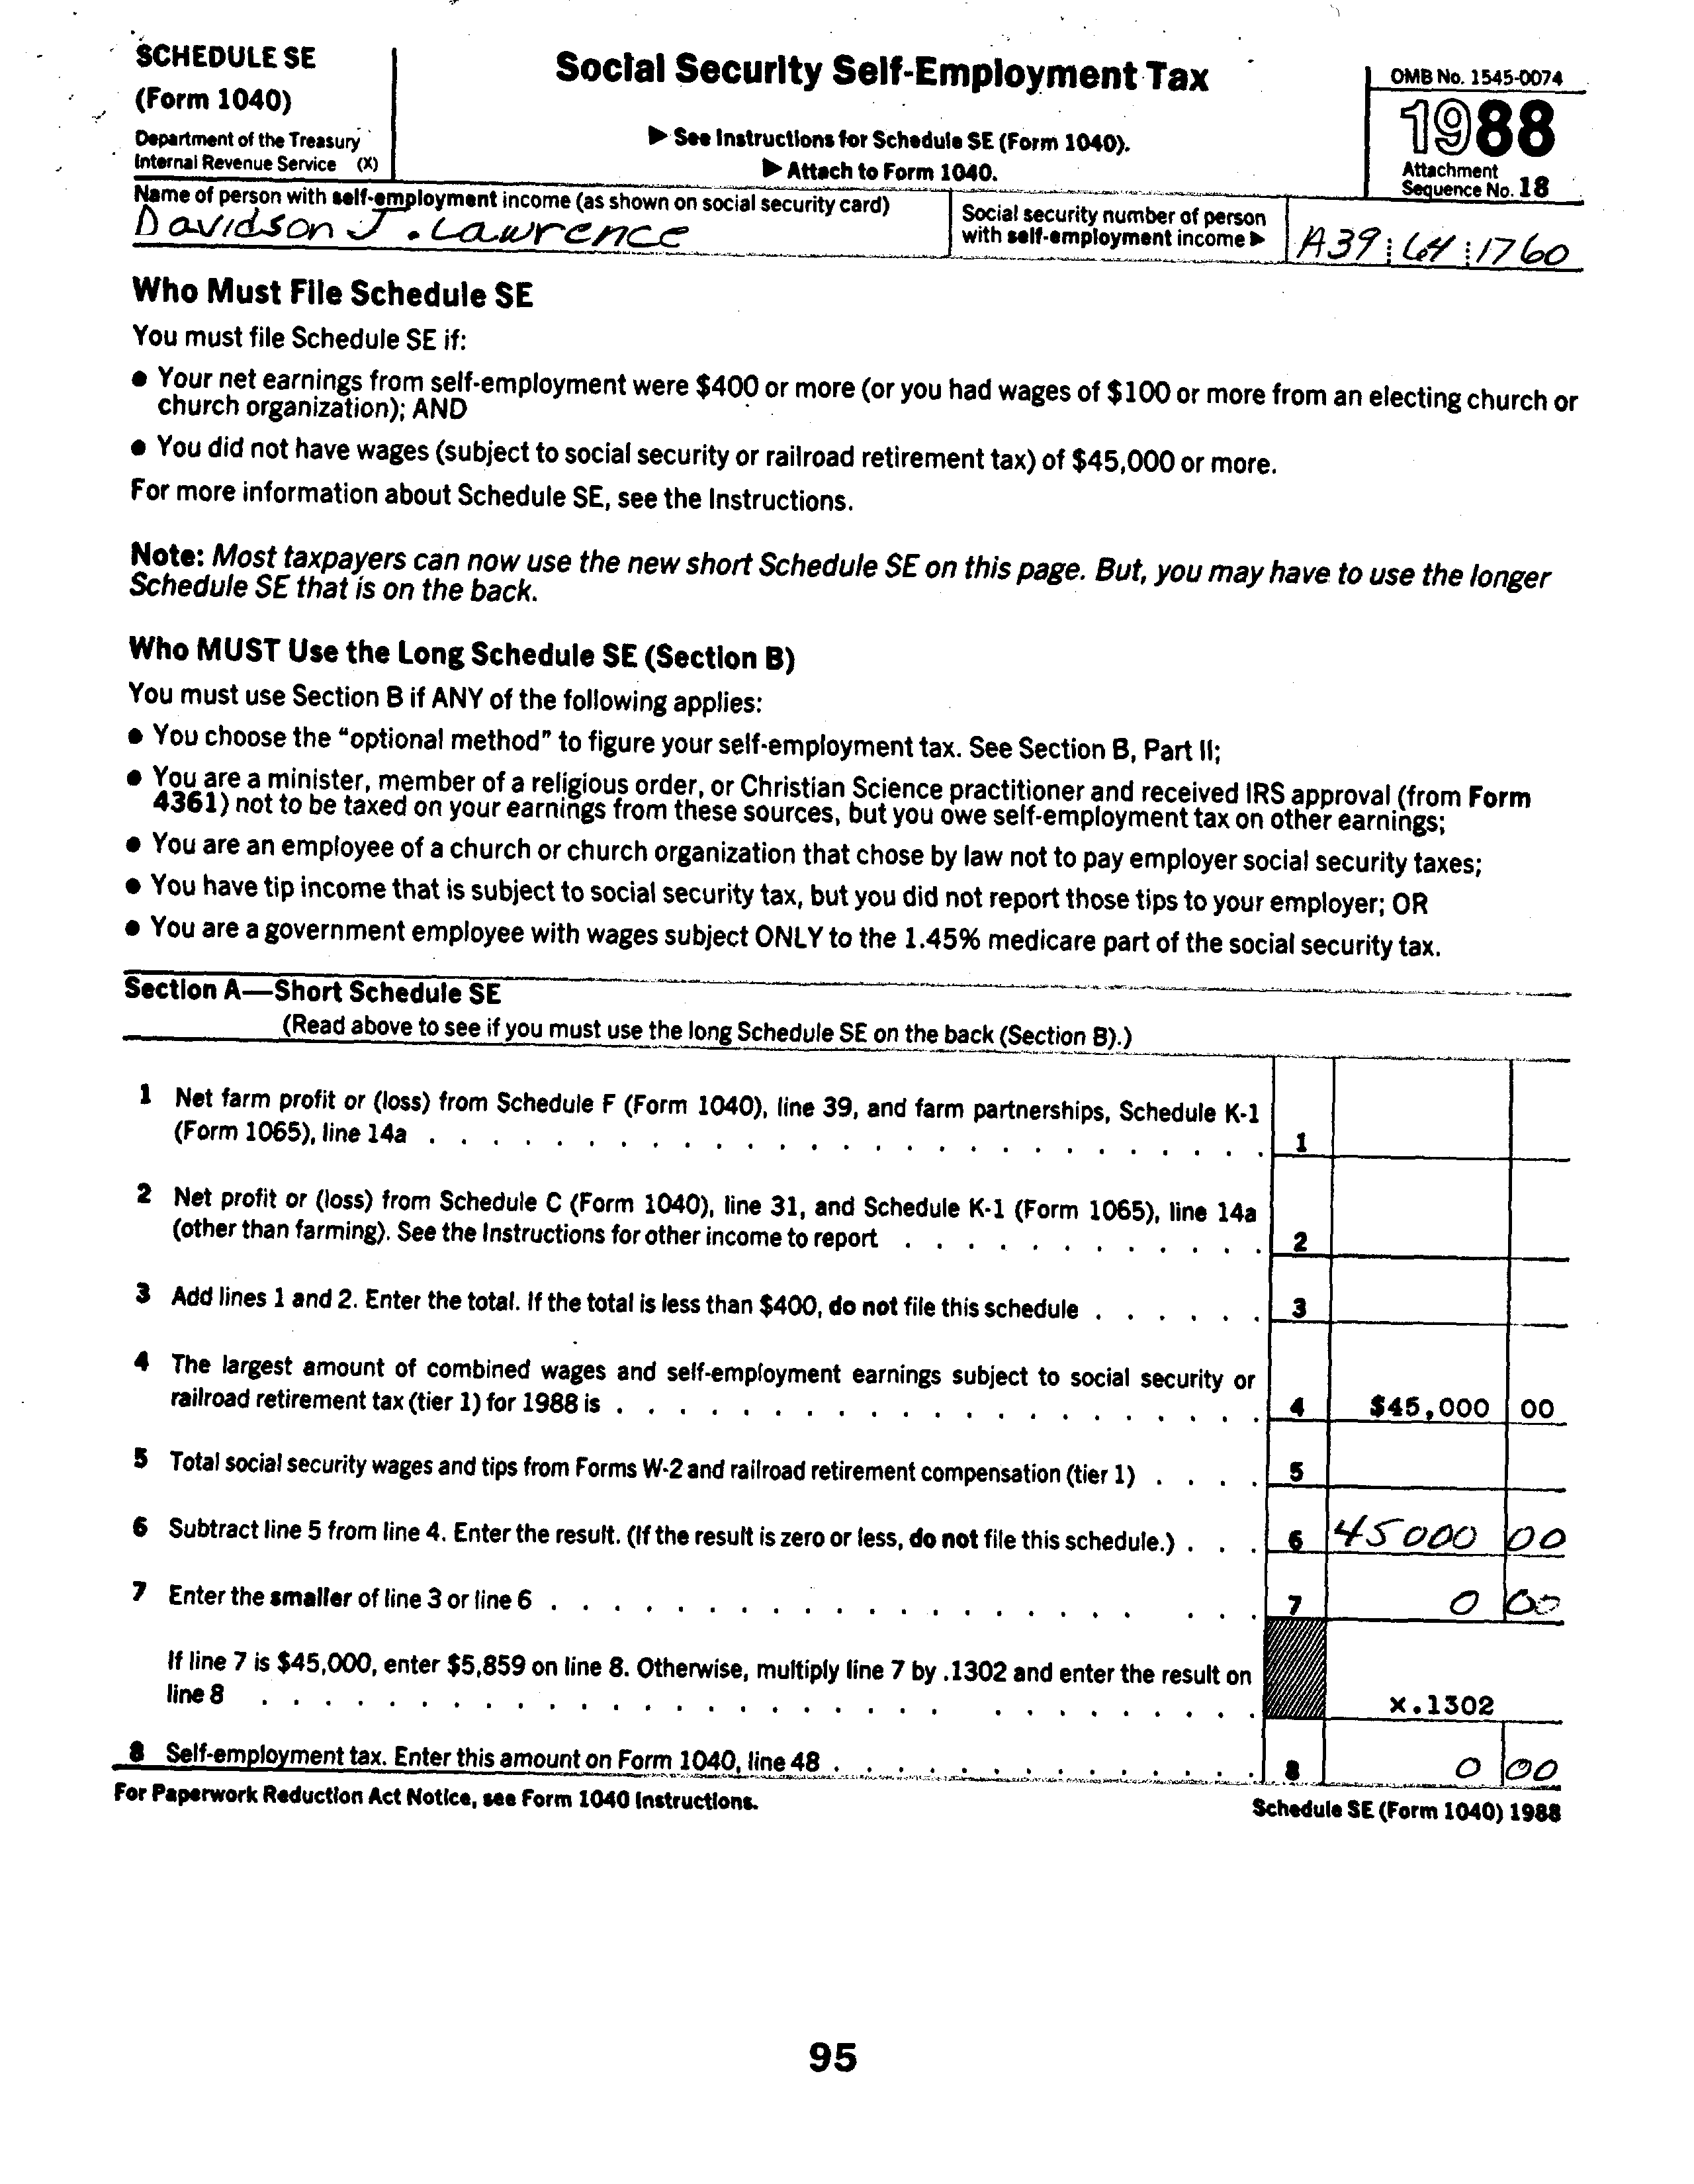 SCHEDULE SE
(Form 1040)
Department of the Treasury
Internal Revenue Service (X)
Social Security Self-Employment Tax
▶ See Instructions for Schedule SE (Form 1040).
▶ Attach to Form 1040.
OMB No. 1545-0074
1988
Attachment
Sequence No. 18
Name of person with self-employment income (as shown on social security card)
Davidson J. Lawrence
Social security number of person
with self-employment income ▶
A39 64 1760
Who Must File Schedule SE
You must file Schedule SE if:
● Your net earnings from self-employment were $400 or more (or you had wages of $100 or more from an electing church or
church organization); AND
● You did not have wages (subject to social security or railroad retirement tax) of $45,000 or more.
For more information about Schedule SE, see the Instructions.
Note: Most taxpayers can now use the new short Schedule SE on this page. But, you may have to use the longer
Schedule SE that is on the back.
Who MUST Use the Long Schedule SE (Section B)
You must use Section B if ANY of the following applies:
● You choose the "optional method" to figure your self-employment tax. See Section B, Part II;
● You are a minister, member of a religious order, or Christian Science practitioner and received IRS approval (from Form
4361) not to be taxed on your earnings from these sources, but you owe self-employment tax on other earnings;
● You are an employee of a church or church organization that chose by law not to pay employer social security taxes;
● You have tip income that is subject to social security tax, but you did not report those tips to your employer; OR
● You are a government employee with wages subject ONLY to the 1.45% medicare part of the social security tax.
Section A—Short Schedule SE
(Read above to see if you must use the long Schedule SE on the back (Section B).)
1 Net farm profit or (loss) from Schedule F (Form 1040), line 39, and farm partnerships, Schedule K-1
(Form 1065), line 14a . . . . . . . . . . . . . . . . . . . . . . . . . . . 1
2 Net profit or (loss) from Schedule C (Form 1040), line 31, and Schedule K-1 (Form 1065), line 14a
(other than farming). See the Instructions for other income to report . . . . . . . . . . . . 2
3 Add lines 1 and 2. Enter the total. If the total is less than $400, do not file this schedule . . . . . . 3
4 The largest amount of combined wages and self-employment earnings subject to social security or
railroad retirement tax (tier 1) for 1988 is . . . . . . . . . . . . . . . . . . . . . 4 $45,000 00
5 Total social security wages and tips from Forms W-2 and railroad retirement compensation (tier 1) . . . . 5
6 Subtract line 5 from line 4. Enter the result. (If the result is zero or less, do not file this schedule.) . . . 6 45000 00
7 Enter the smaller of line 3 or line 6 . . . . . . . . . . . . . . . . . . . . . . 7 0 00
If line 7 is $45,000, enter $5,859 on line 8. Otherwise, multiply line 7 by .1302 and enter the result on
line 8 . . . . . . . . . . . . . . . . . . . . . . . . . . . . . . x.1302
8 Self-employment tax. Enter this amount on Form 1040, line 48 . . . . . . . . . . . . . . 8 0 00
For Paperwork Reduction Act Notice, see Form 1040 Instructions.
Schedule SE (Form 1040) 1988
95